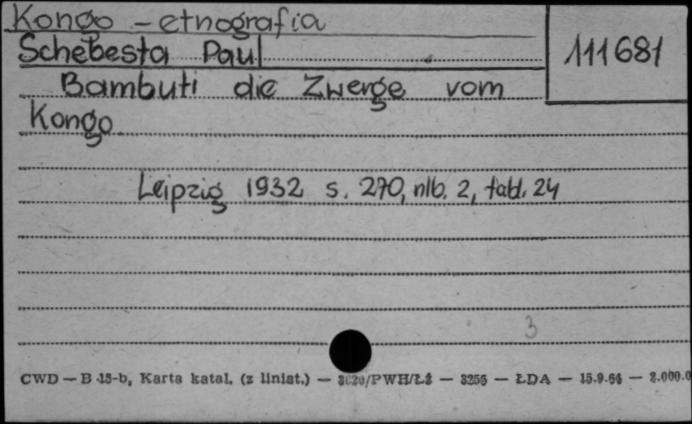 Kongo - etnografia
Schebesta Paul
111681
Bambuti die Zwerge vom
Kongo
Leipzig 1932 s. 270, nlb. 2, tabl. 24
3
CWD — B 15-b, Karta katal. (z liniat.) — 3620/PWH/Łź — 3256 — ŁDA — 15.9.66 — 2.000.0